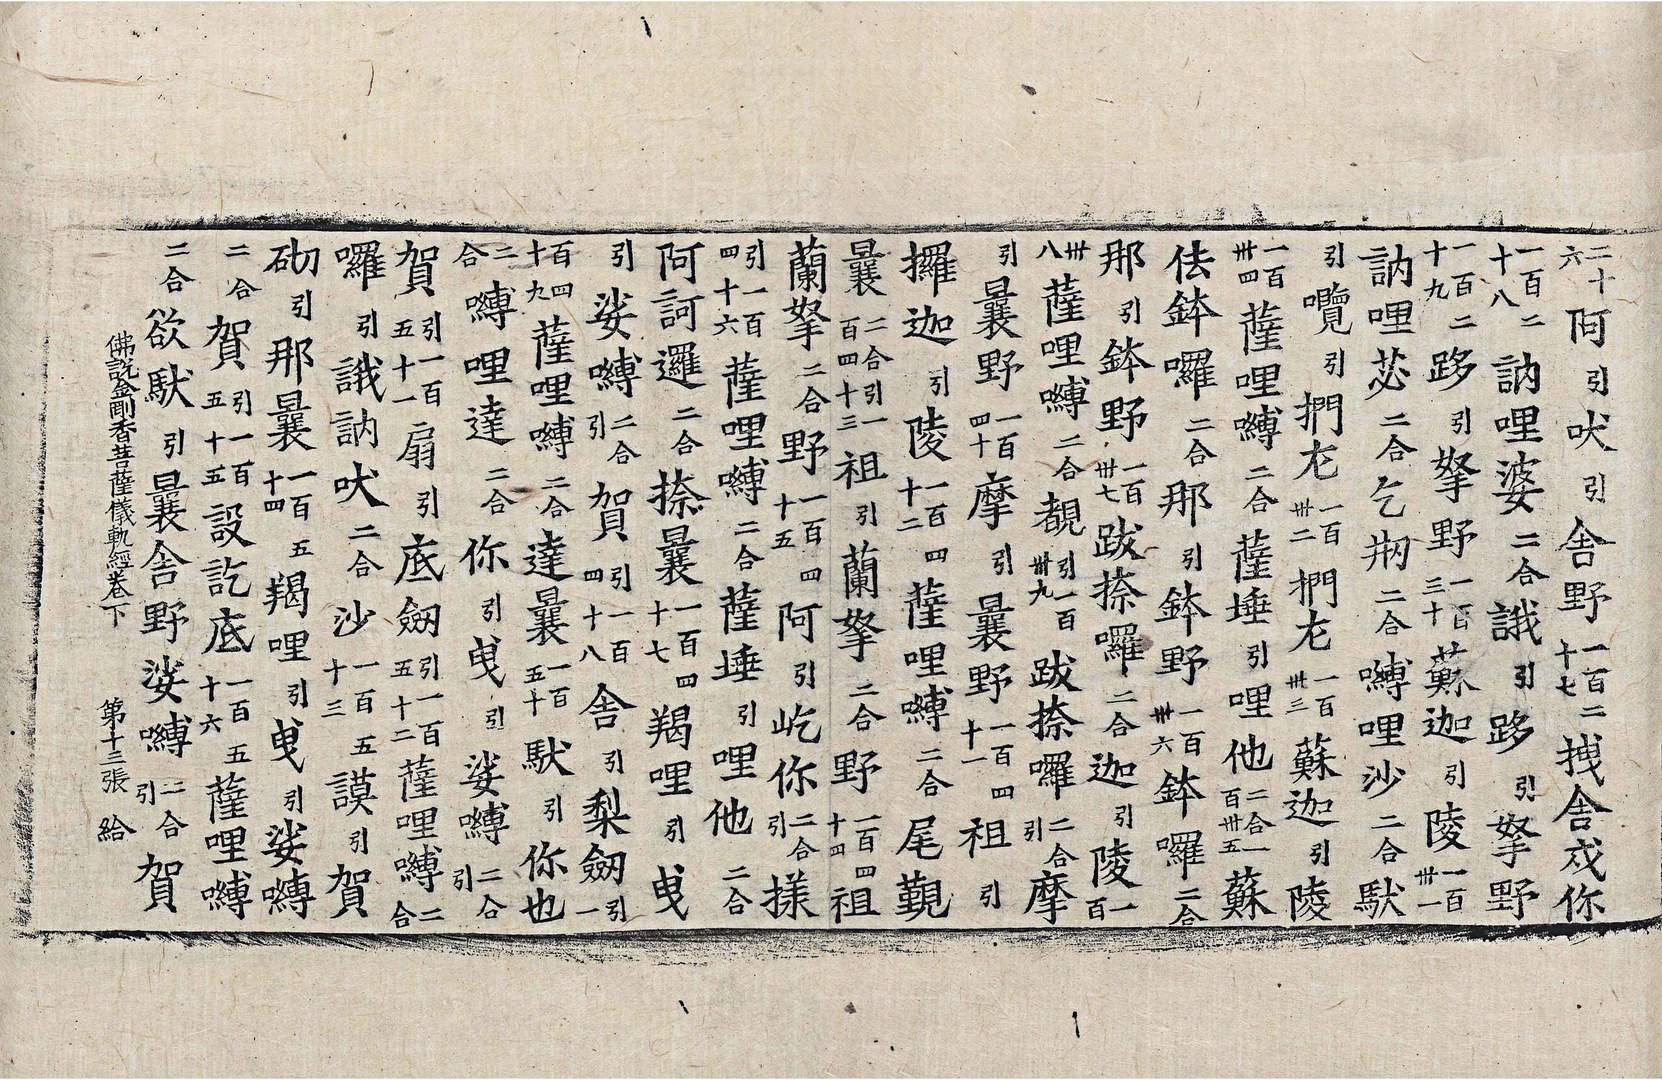 二十六阿引吠引舍野一百二十七拽舍戍你
一百二十八訥哩婆二合誐引跢引拏野
一百二十九跢引拏野一百三十蘇迦引陵一百卅一
訥哩苾二合乞芿二合嚩哩沙二合馱
引嚂引捫尨一百卅二捫尨一百卅三蘇迦引陵
一百卅四薩哩嚩二合薩埵引哩他二合一百卅五蘇
佉鉢囉二合那引鉢野一百卅六鉢囉二合
那引鉢野一百卅七跋捺囉二合迦引陵一百
卅八薩哩嚩二合覩引一百卅九跋捺囉二合引摩
引曩野一百四十摩引曩野一百四十一祖引
攞迦引陵一百四十二薩哩嚩二合尾覲
曩二合引一百四十三祖引蘭拏二合野一百四十四祖
蘭拏二合野一百四十五阿引屹你二合引拶
引一百四十六薩哩嚩二合薩埵引哩他二合
阿訶邏二合捺曩一百四十七羯哩引曳
引娑嚩二合引賀引一百四十八舍引梨劔引一
百四十九薩哩嚩二合達曩一百五十馱引你也
二合嚩哩達二合你引曳引娑嚩二合引
賀引一百五十一扇引底劔引一百五十二薩哩嚩二合
囉引誐訥吠二合沙一百五十三謨引賀
砌引那曩一百五十四羯哩引曳引娑嚩
二合賀引一百五十五設訖底一百五十六薩哩嚩
二合欲馱引曩舍野娑嚩二合引賀
佛說金剛香菩薩儀軌經卷下 第十三張 給